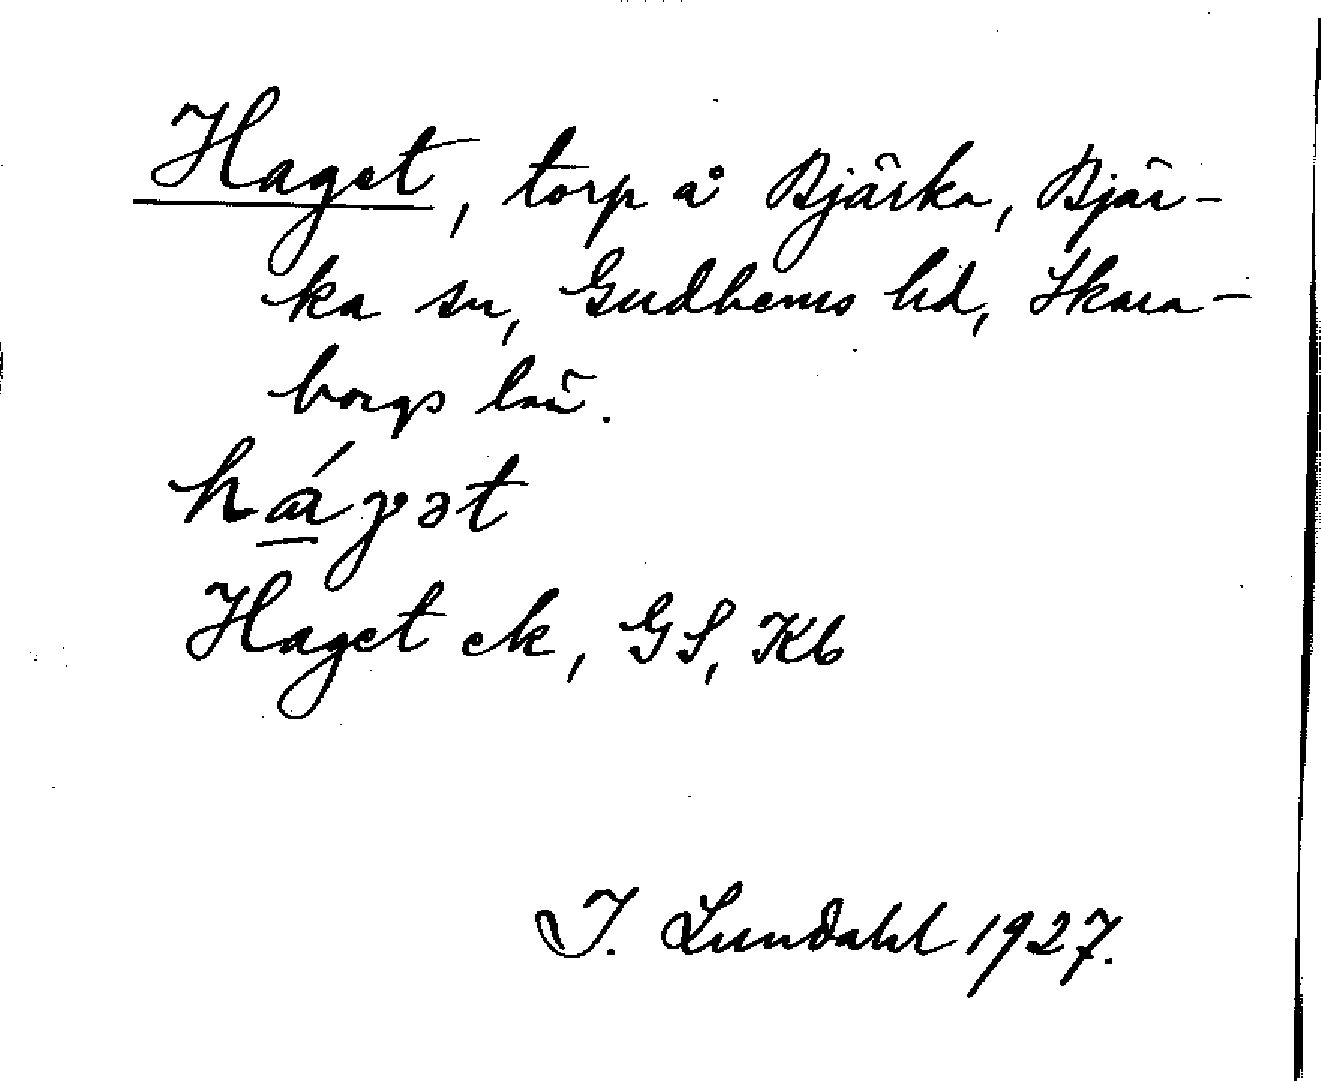 Haget, torp å Bjärka, Bjär-
ka sn, Gudhems hd, Skara-
borgs län.
há̱gət
Haget ek, GS, Kb
I. Lundahl 1927.